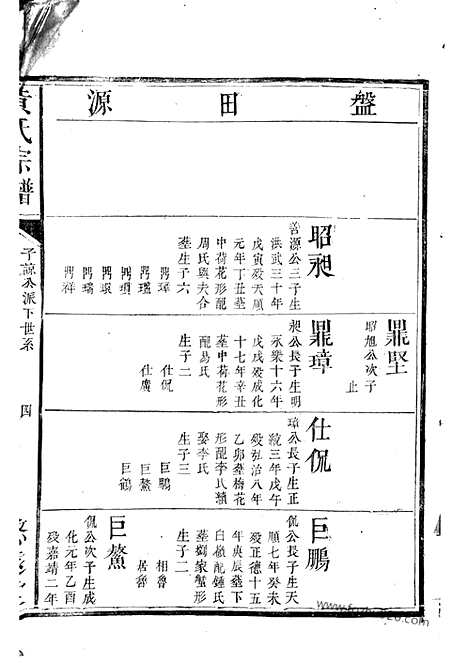 盤田源
昭昶
善源公三子生
洪武三十年
戊寅歿天順
元年丁丑墓
中荷花形配
周氏與夫合
墓生子六
鼎璋
鼎瓚
鼎瑞
鼎祥
鼎堅
昭旭公次子
止
鼎璋
昶公長子生明
永樂十六年
戊戌歿成化
十七年辛丑
墓中荷花形
配易氏
生子二
仕侃
仕廣
仕侃
璋公長子生正
統三年戊午
歿弘治八年
乙卯墓梅花
形配李氏續
娶李氏
生子三
巨鵬
巨鰲
巨鶴
巨鵬
侃公長子生天
順七年癸未
歿正德十五
年庚辰墓下
白嶺配鍾氏
墓鄭家蟹形
生子二
相魯
居魯
巨鰲
侃公次子生成
化元年乙酉
歿嘉靖二年
黃氏宗譜
子諒公派下世系
四